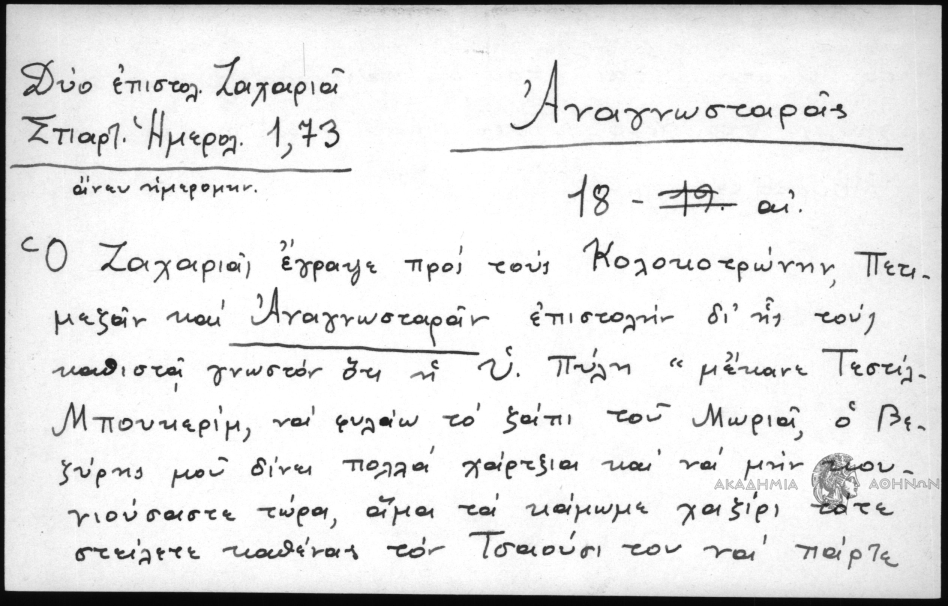 Δύο ἐπιστολ. Ζαχαριᾶ
Σπαρτ. Ἡμερολ. 1,73
ἄνευ ἡμερομην.
Ἀναγνωσταρᾶς
18 - 19. αἰ.
Ὁ Ζαχαριᾶς ἔγραψε πρός τούς Κολοκοτρώνην, Πετι-
μεζᾶν καί Ἀναγνωσταρᾶν ἐπιστολήν δι' ἧς τούς
καθιστᾷ γνωστόν ὅτι ἡ Ὑ. Πύλη " μἔκανε Τεστίλ-
Μπουκερίμ, νά φυλάω τό ζάπι τοῦ Μωριᾶ, ὁ Βε-
ζύρης μοῦ δίνει πολλά χάρτζια καί νά μήν κιου-
γιούσαστε τώρα, ἅμα τά κάμωμε χαζίρι τότε
στείλετε καθένας τόν Τσαούσι του νά πάρτε
ΑΚΑΔΗΜΙΑ ΑΘΗΝΩΝ